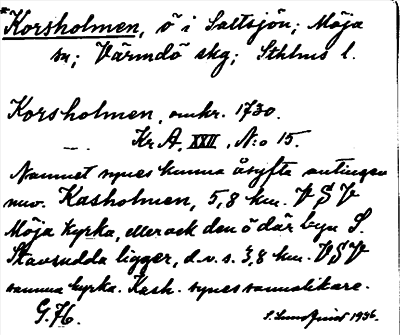 *Korsholmen, ö i Saltsjön; Möja
sn; Värmdö skg; Sthlms l.
Korsholmen, omkr. 1730.
— Kr A, XXII, N:o 15.
Namnet synes kunna åsyfta antingen
nuv. Kasholmen, 5,8 km. V S V
Möja kyrka, eller ock den ö där byn S.
Stavsudda ligger, d.v.s. 3,8 km. V S V
samma kyrka. Kash. synes sannolikare.
G. Hb.
S. Sundquist 1936.